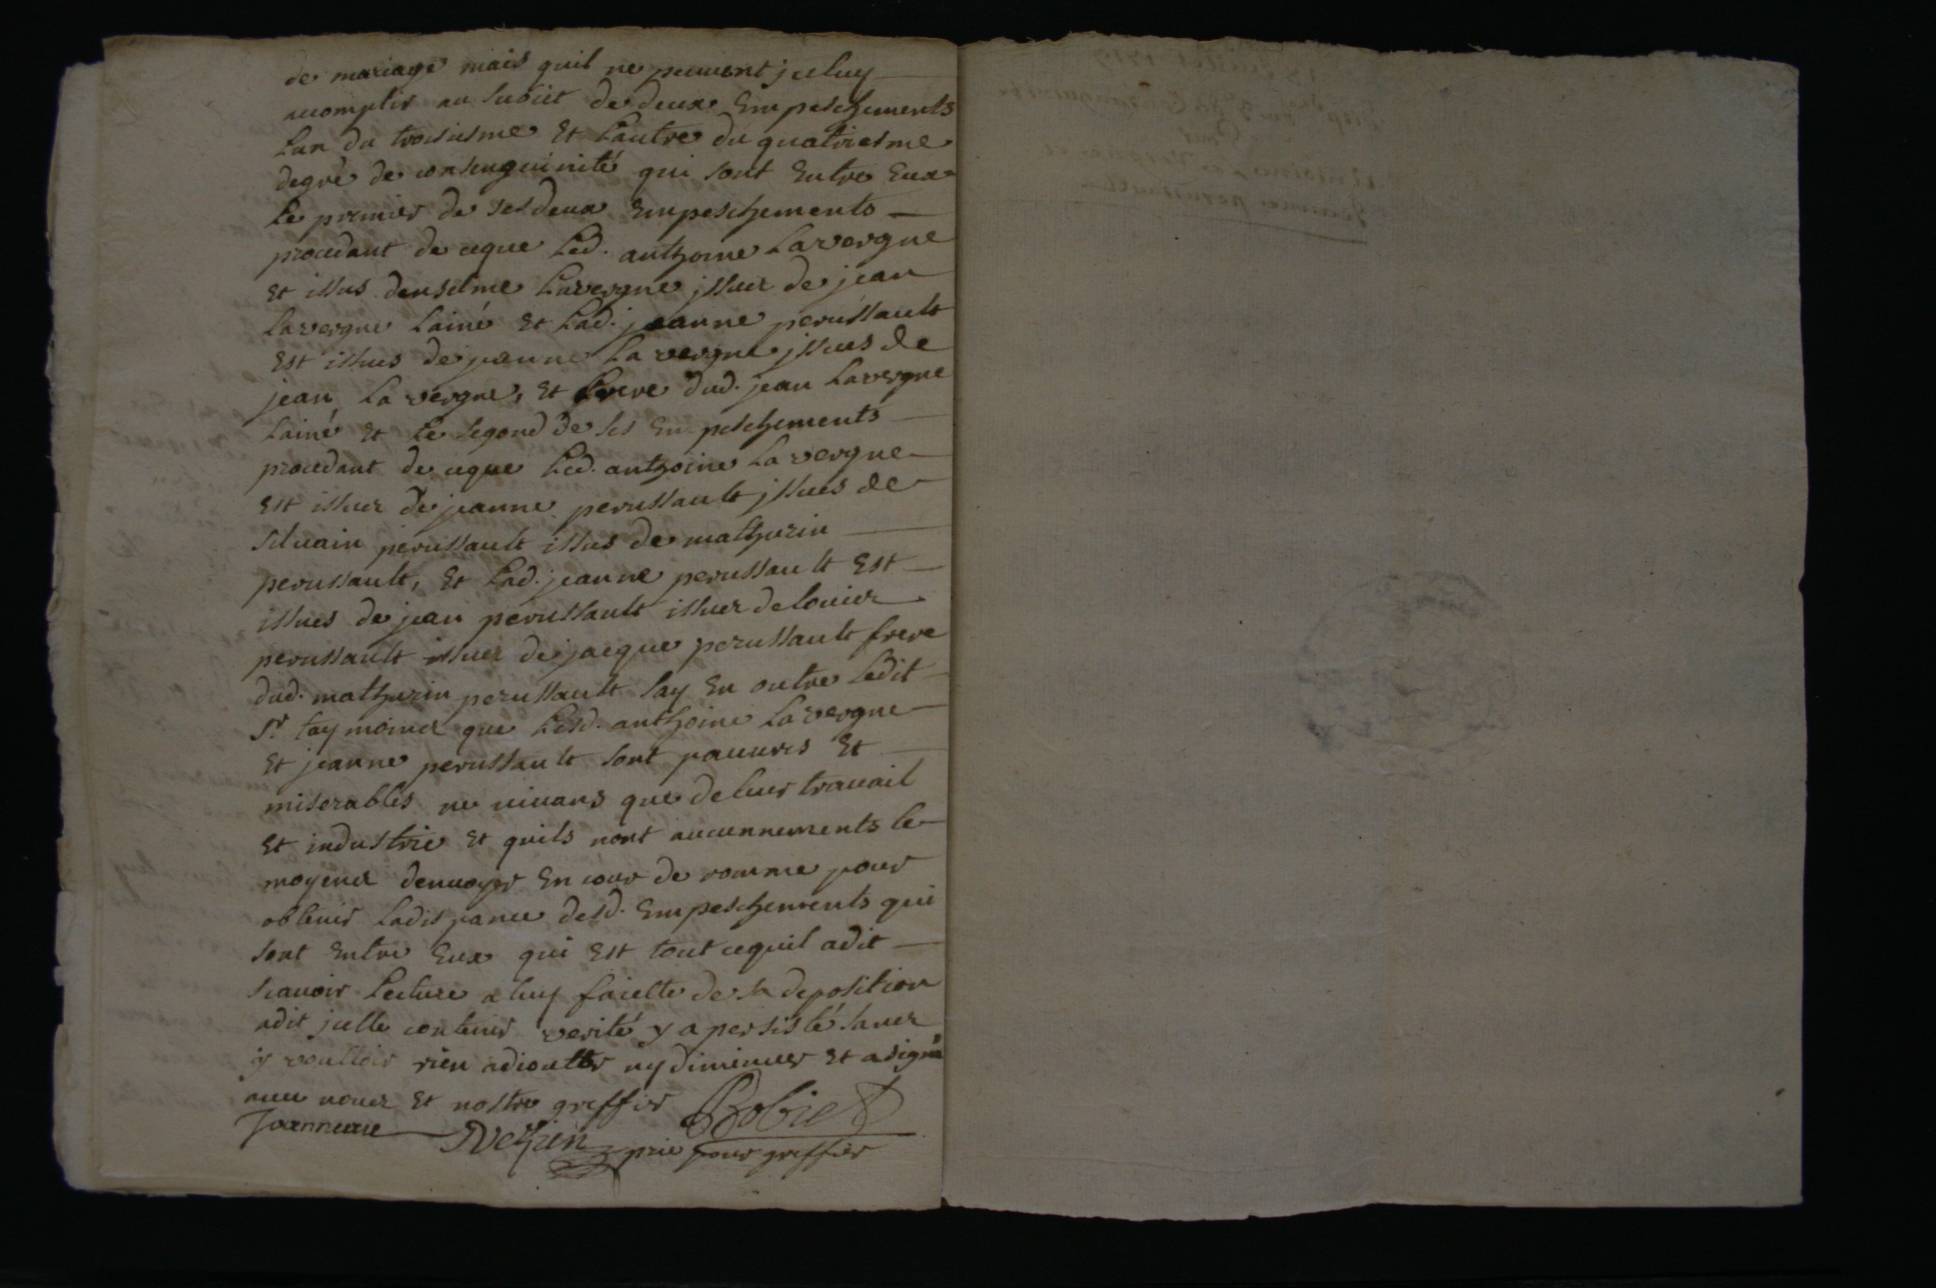 de mariage mais quil ne peuvent jceluy
accomplir au subiet de deux Empeschements
Lun du troisiesme Et Lautre du quatriesme
degré de consenguinité qui sont Entre Eux
Le premier de ses deux Empeschements
procedant de ceque Led. anthoine Lavergne
Et issus denselme Lavergne jssuer de jean
Lavergne Lainé Et Lad. jeanne perussault
Est issues de jeanne La vergne jssues de
jean La vergne, Et frere dud. jean Lavergne
Lainé Et Le segond de ses Empeschements
procedant de ceque Led. anthoine La vergne
Est issuer de jeanne perussault jssues de
siluain perussault issus de mathurin
perussault, Et Lad. jeanne perussault Est
issues de jean perussault issuer de Louier
perussault issuer de jacque perussault frere
dud. mathurin perussault say En outre Ledit
Sr que Lesd. anthoine Lavergne
Et jeanne perussault sont pauures Et
miserables ne viuans que de Leur trauail
Et industrie Et quils nont aucunnements le
moyener denuoyer En cour de romme pour
obtenir Ladispance desd. Empeschements qui
sont Entre Eux qui Est tout cequil adit
scauoir Lecture a luy faicte de sa deposition
adit jcelle contenir verité y a persisté saner
y voulloir rien adioutter ny diminuer Et asigné
auec nouer Et nostre greffier Robiet
Joanneau Nehien prie pour greffier